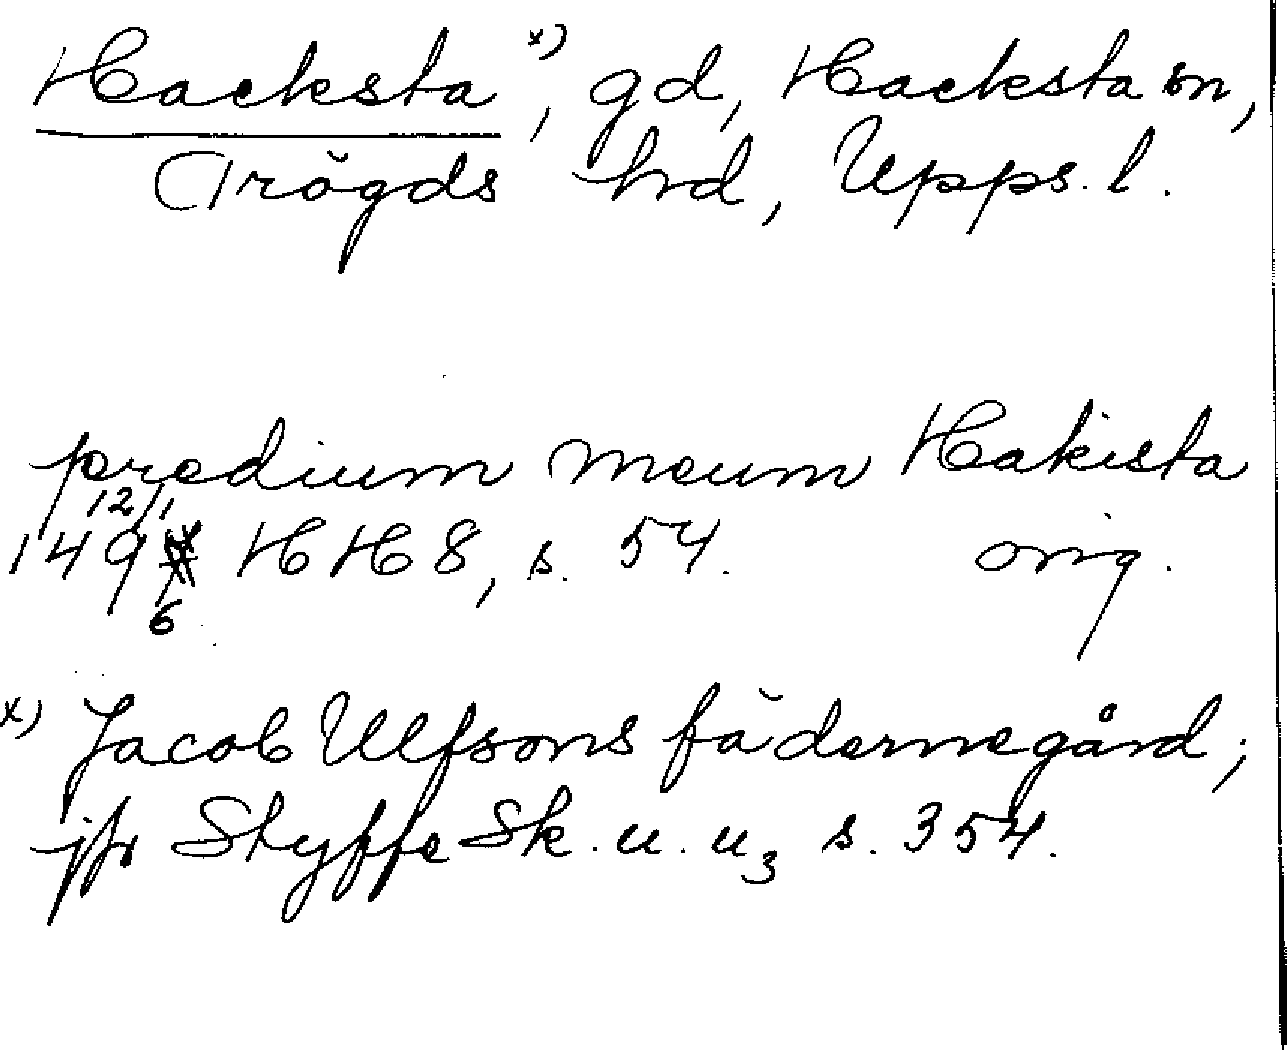 Hacksta x), gd, Hacksta sn,
Trögds hd, Upps. l.
predium meum Hakista
12/1
1496 HH 8, s. 54. orig.
x) Jacob Ulfsons fädernegård;
jfr Styffe Sk. u. u3 s. 354.